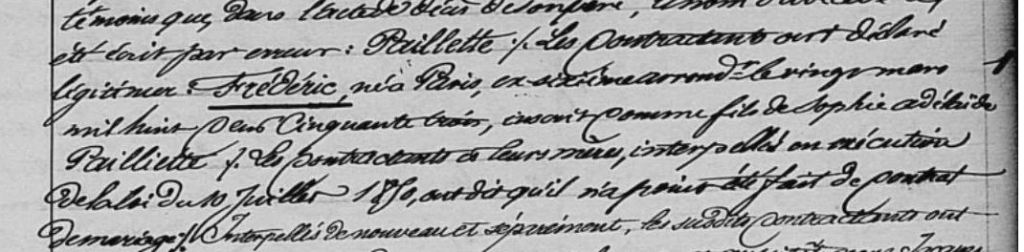 témoins que, dans l'acte de décès de son père, le nom
été écrit par erreur : Paillette ./. Les contractants ont déclaré
légitimer : Frédéric, né à Paris, ex-sixième arrondr. le vingt mars
mil huit cent cinquante trois, inscrit comme fils de Sophie adélaïde
Pailliette ./. Les contractants et leurs mères, interpellés en exécution
de la loi du 10 Juillet 1850, ont dit qu'il n'a point été fait de contrat
de mariage ./. Interpellés de nouveau et séparément, les susdits contractants ont